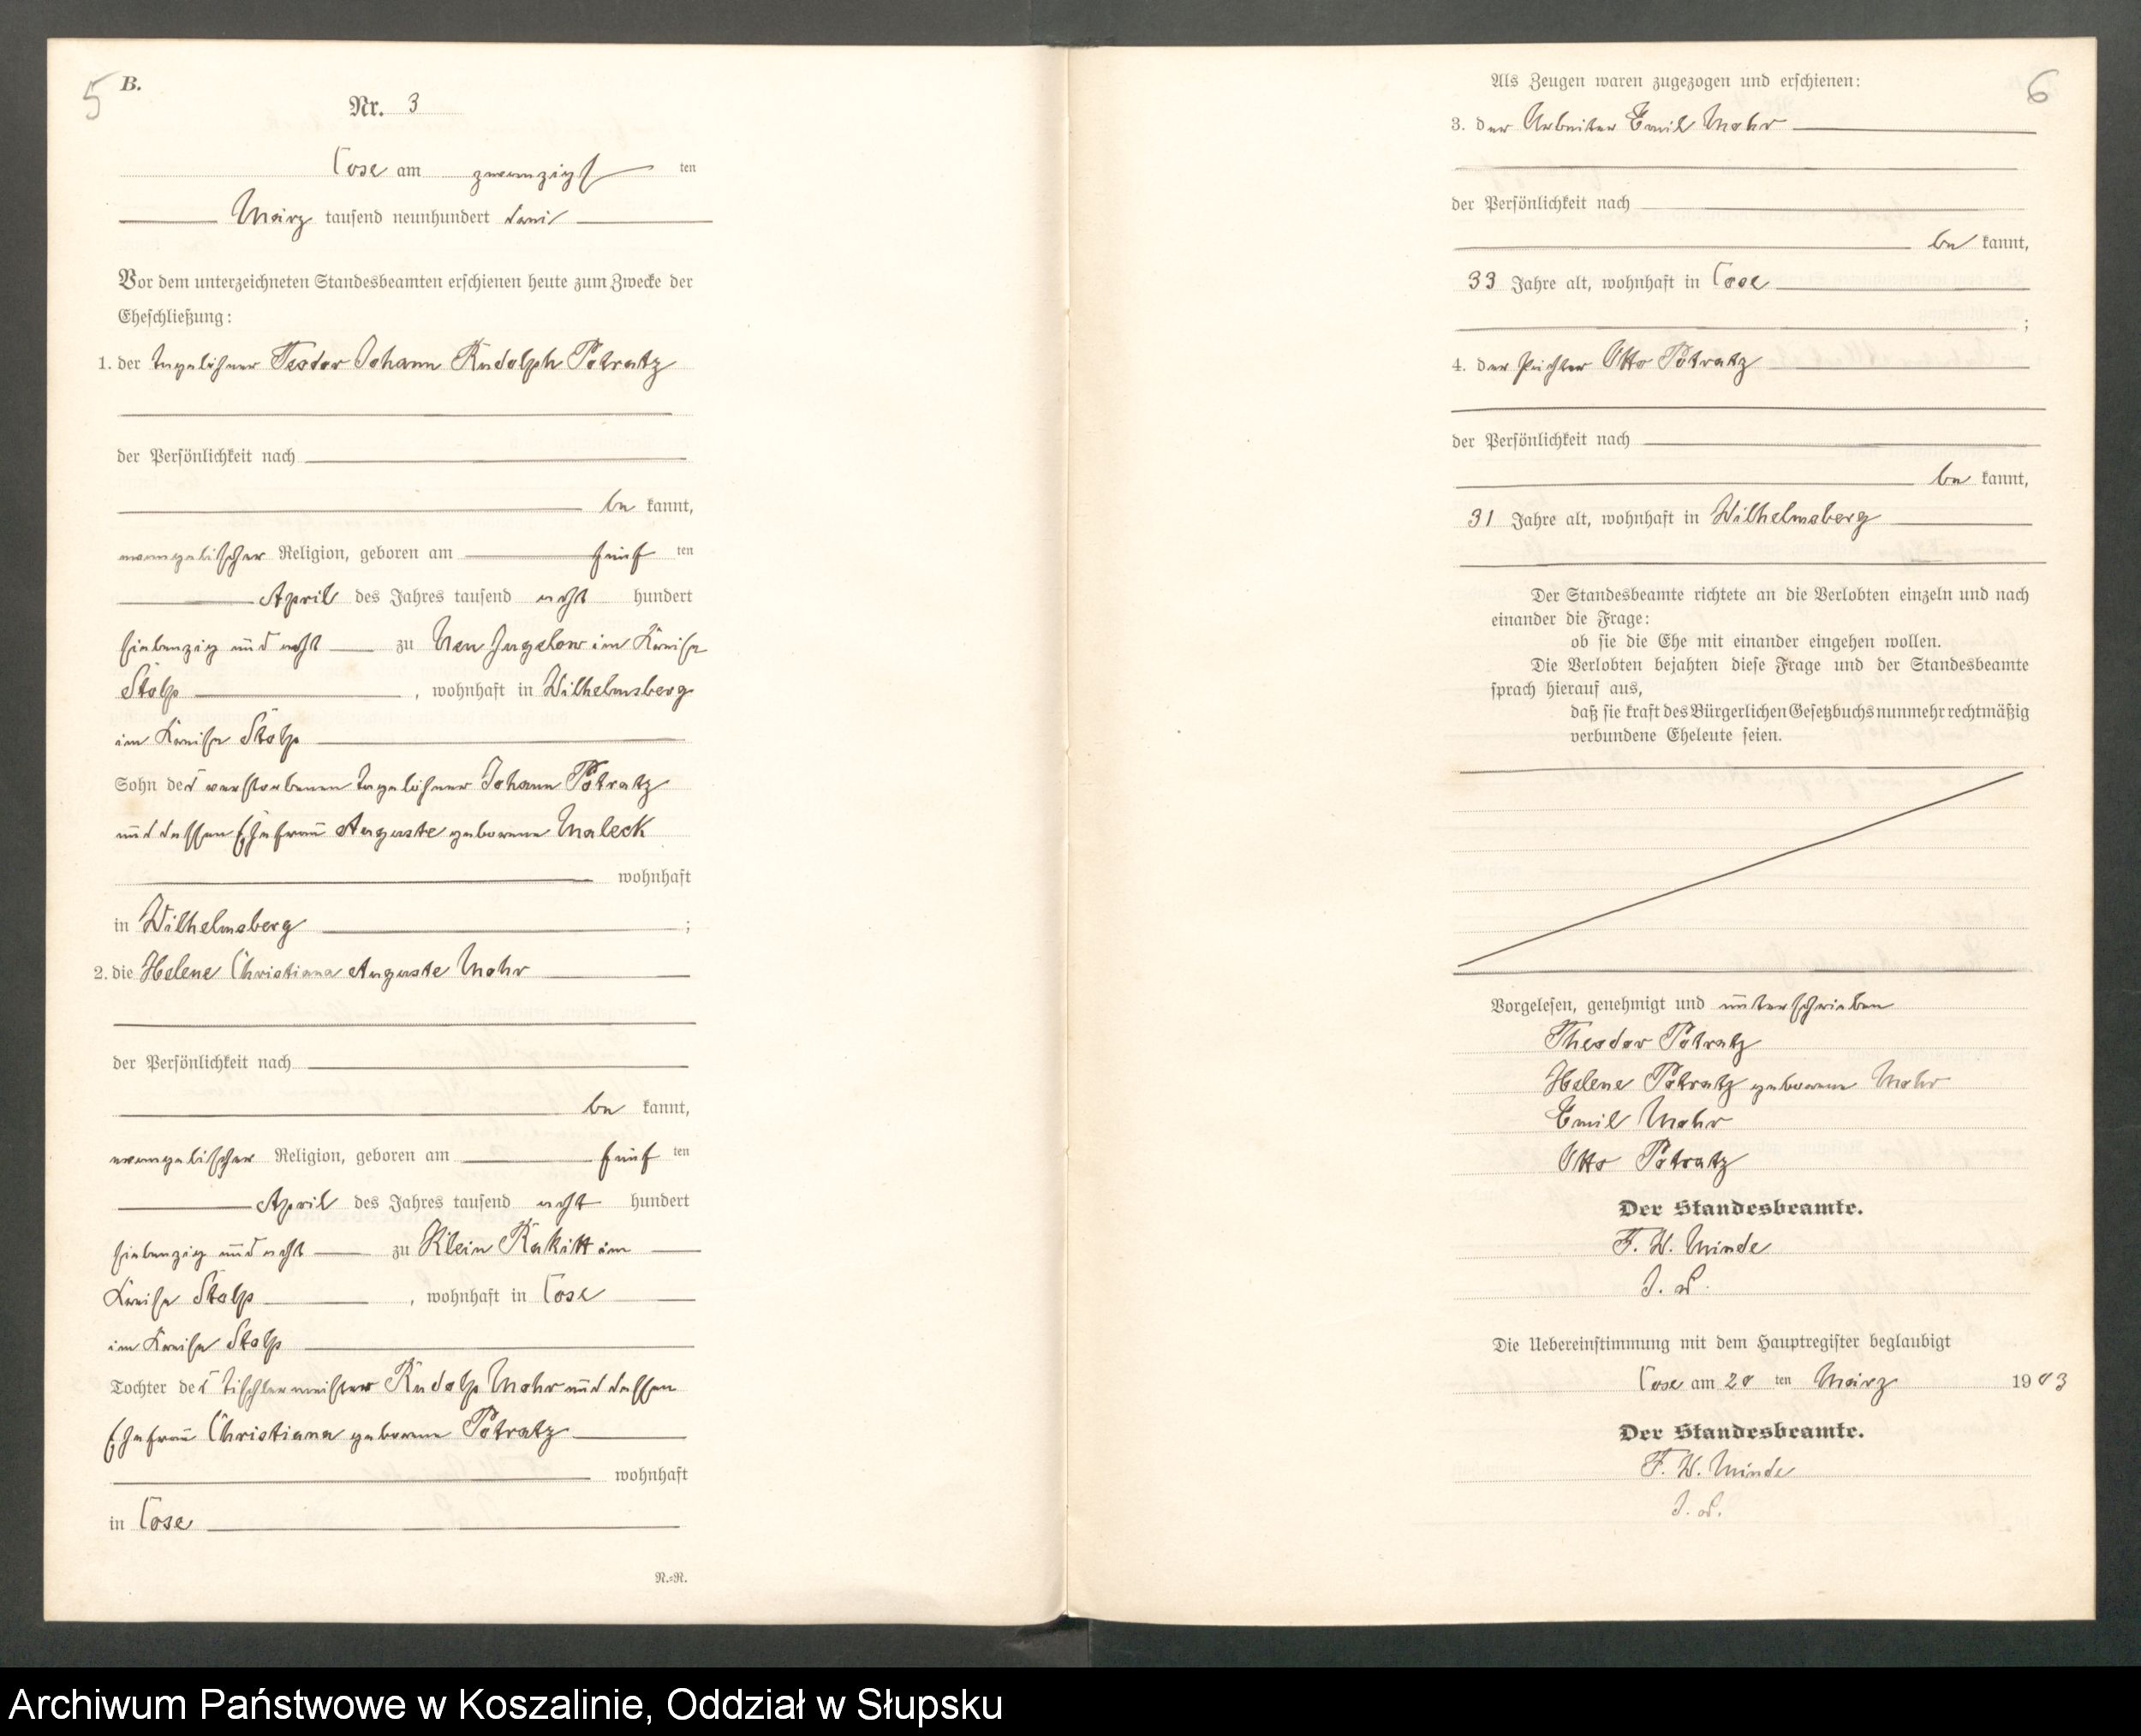 5
B.
Nr. 3
Cose am zwanzigsten
März tausend neunhundert drei
Vor dem unterzeichneten Standesbeamten erschienen heute zum Zwecke der
Eheschließung:
1. der Tagelöhner Teodor Johann Rudolph Pötratz
der Persönlichkeit nach
be kannt,
evangelischer Religion, geboren am fünf ten
April des Jahres tausend acht hundert
siebenzig und acht zu Neu Jugelow im Kreise
Stolp, wohnhaft in Wilhelmsberg
im Kreise Stolp
Sohn des verstorbenen Tagelöhner Johann Pötratz
und dessen Ehefrau Auguste geborene Maleck
wohnhaft
in Wilhelmsberg;
2. die Helene Christiana Auguste Mohr
der Persönlichkeit nach
be kannt,
evangelischer Religion, geboren am fünf ten
April des Jahres tausend acht hundert
siebenzig und acht zu Klein Rakitt im
Kreise Stolp, wohnhaft in Cose
im Kreise Stolp
Tochter des Tischlermeister Rudolp Mohr und dessen
Ehefrau Christiana geborene Pötratz
wohnhaft
in Cose
N.=N.
6
Als Zeugen waren zugezogen und erschienen:
3. der Arbeiter Emil Mohr
der Persönlichkeit nach
be kannt,
33 Jahre alt, wohnhaft in Cose
;
4. der Pächter Otto Pötratz
der Persönlichkeit nach
be kannt,
31 Jahre alt, wohnhaft in Wilhelmsberg
Der Standesbeamte richtete an die Verlobten einzeln und nach
einander die Frage:
ob sie die Ehe mit einander eingehen wollen.
Die Verlobten bejahten diese Frage und der Standesbeamte
sprach hierauf aus,
daß sie kraft des Bürgerlichen Gesetzbuchs nunmehr rechtmäßig
verbundene Eheleute seien.
Vorgelesen, genehmigt und unterschrieben
Theodor Pötratz
Helene Pötratz geborene Mohr
Emil Mohr
Otto Pötratz
Der Standesbeamte.
F. W. Minde
Die Uebereinstimmung mit dem Hauptregister beglaubigt
Cose am 20 ten März 1903
Der Standesbeamte.
F. W. Minde
Archiwum Państwowe w Koszalinie, Oddział w Słupsku